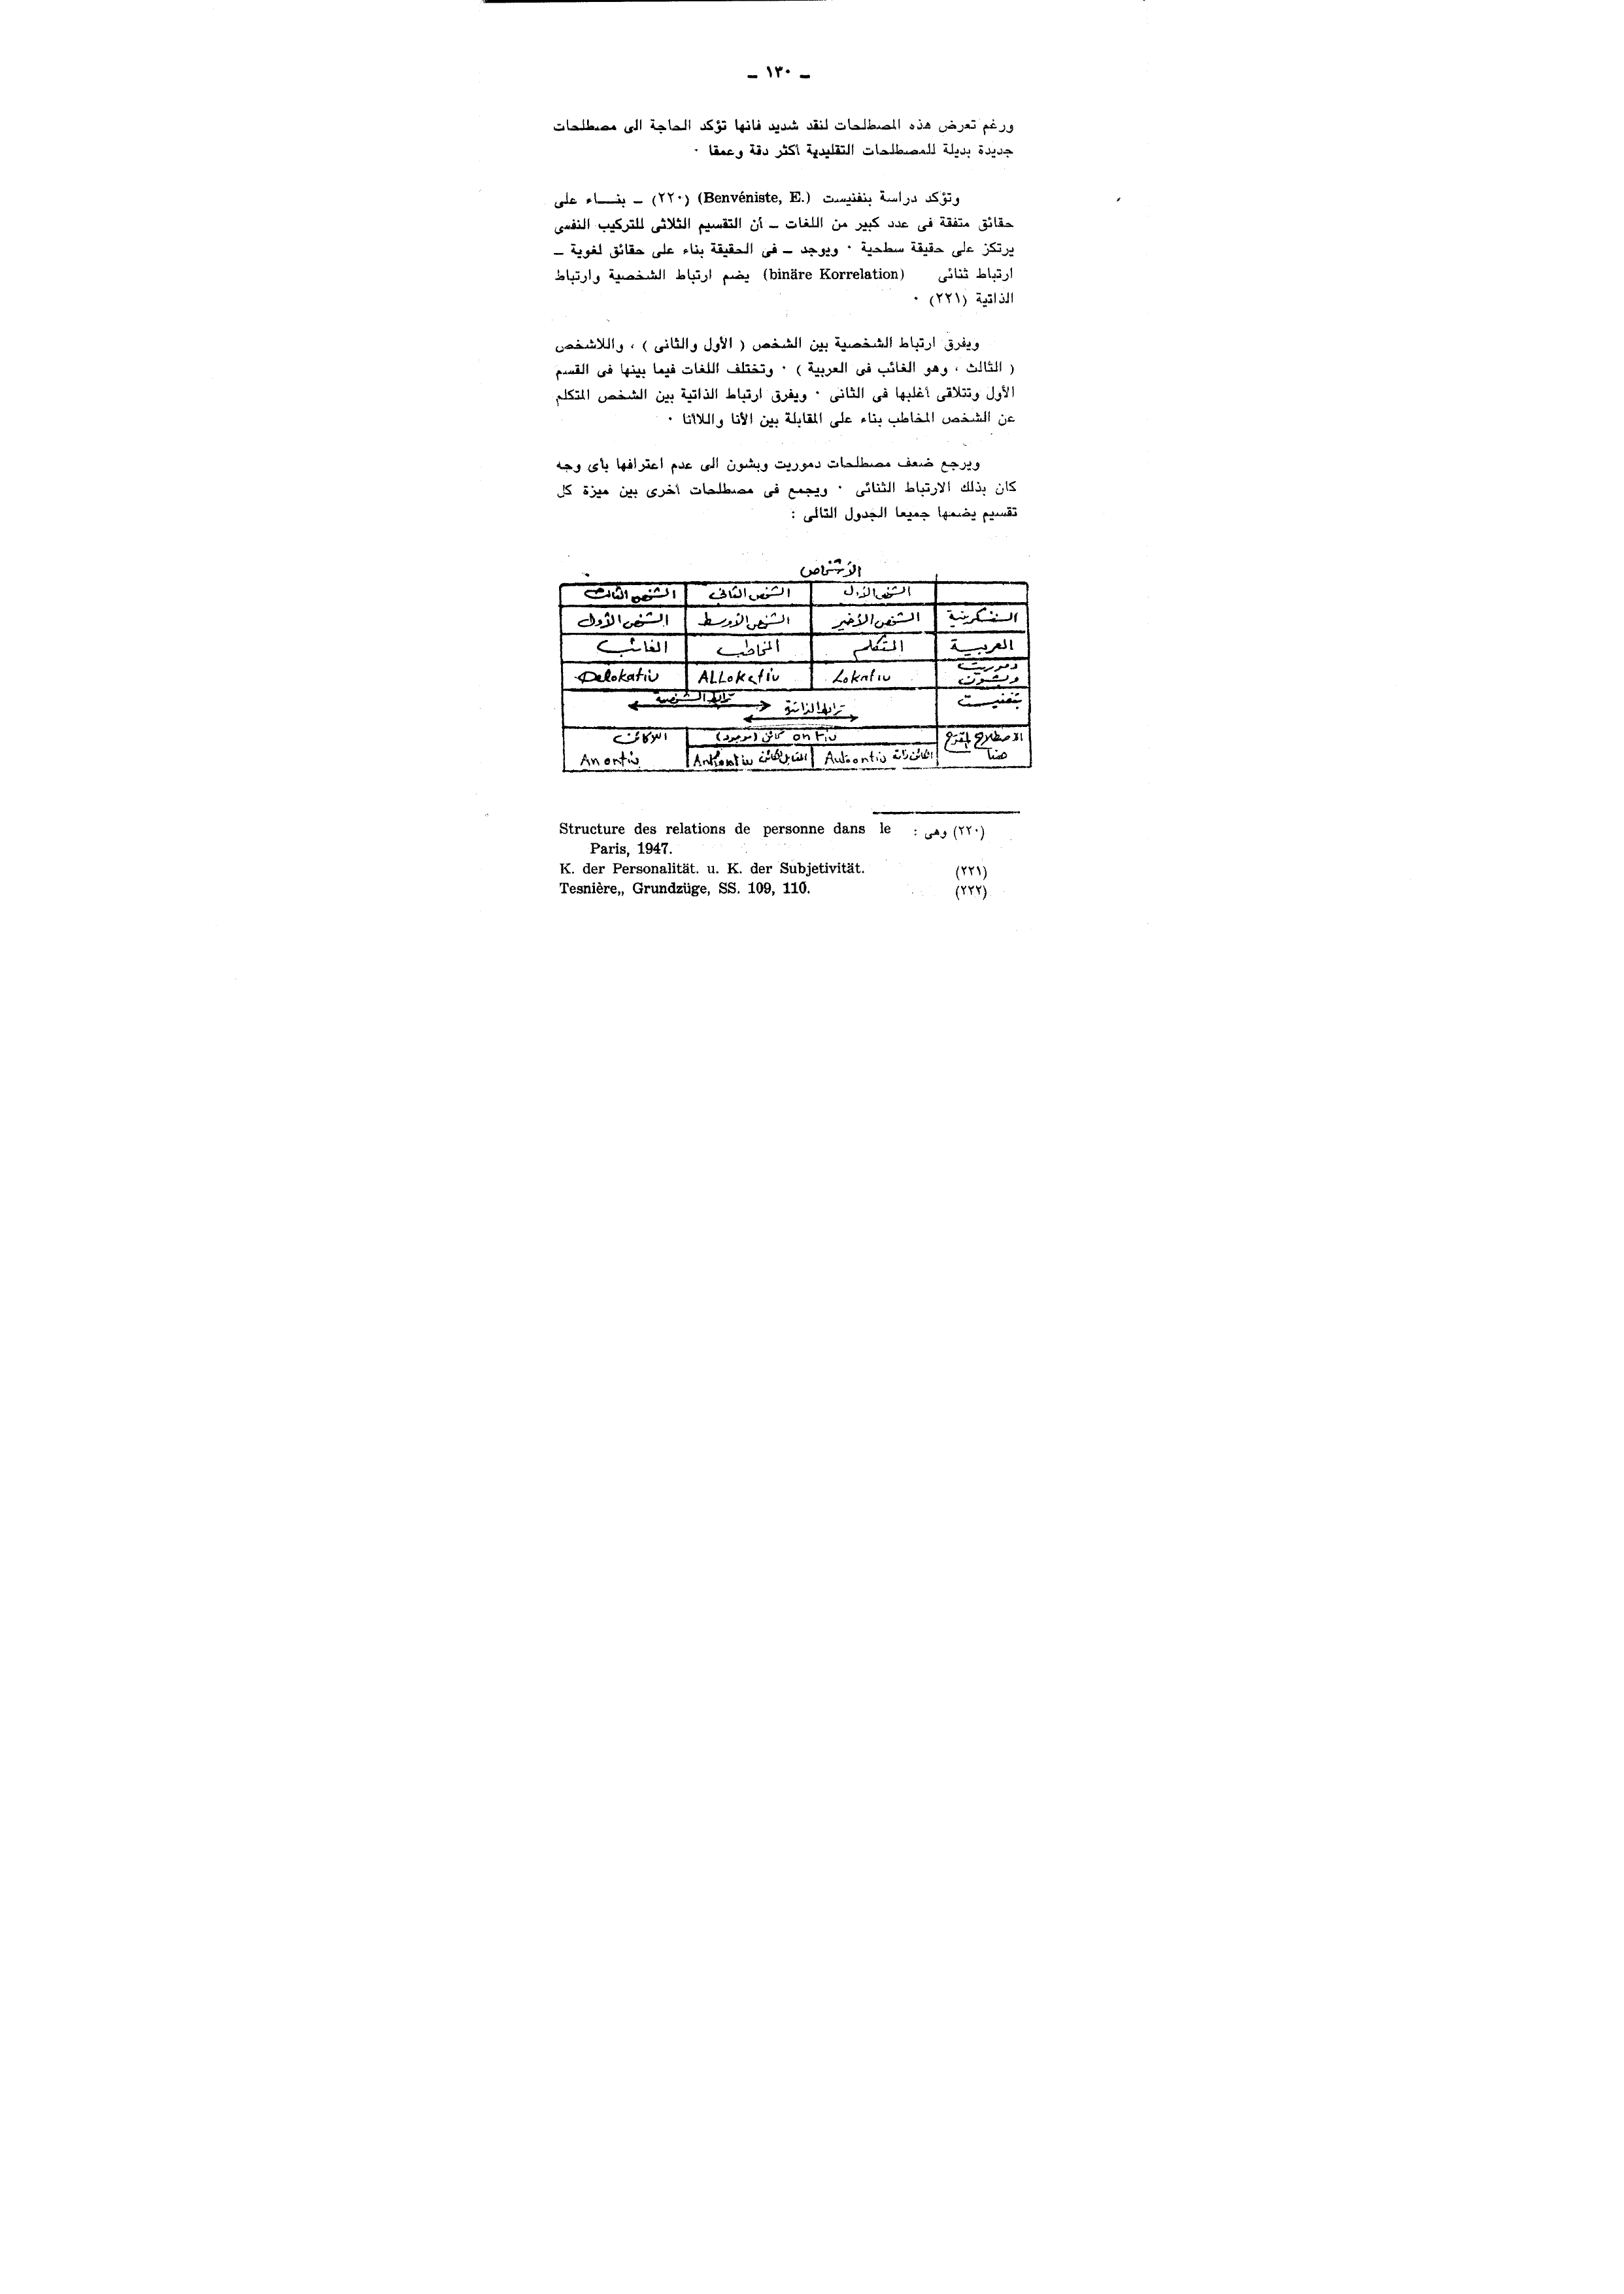 ـ ١٣٠ ـ
ورغم تعرض هذه المصطلحات لنقد شديد فانها تؤكد الحاجة الى مصطلحات
جديدة بديلة للمصطلحات التقليدية أكثر دقة وعمقا ٠
وتؤكد دراسة بنفنيست (Benvéniste, E.) (٢٢٠) ـ بنـــاء على
حقائق متفقة فى عدد كبير من اللغات ـ أن التقسيم الثلاثى للتركيب النفسى
يرتكز على حقيقة سطحية ٠ ويوجد ـ فى الحقيقة بناء على حقائق لغوية ـ
ارتباط ثنائى (binäre Korrelation) يضم ارتباط الشخصية وارتباط
الذاتية (٢٢١) ٠
ويفرق ارتباط الشخصية بين الشخص ( الأول والثانى ) ، واللاشخص
( الثالث ، وهو الغائب فى العربية ) ٠ وتختلف اللغات فيما بينها فى القسم
الأول وتتلاقى أغلبها فى الثانى ٠ ويفرق ارتباط الذاتية بين الشخص المتكلم
عن الشخص المخاطب بناء على المقابلة بين الأنا واللاأنا ٠
ويرجع ضعف مصطلحات دموريت وبشون الى عدم اعترافها بأى وجه
كان بذلك الارتباط الثنائى ٠ ويجمع فى مصطلحات أخرى بين ميزة كل
تقسيم يضمها جميعا الجدول التالى :
الأشخاص
الشخص الأول الشخص الثانى الشخص الثالث
السنسكريتية الشخص الأخير الشخص الأوسط الشخص الأول
العربية المتكلم المخاطب الغائب
دموريت
وبشون Lokativ ALLokativ Delokativ
بنفنيست ترابط الذاتية ترابط الشخصية
الاصطلاح المقترح ontiv كائن (موجود) اللاكائن
هنا Autoontiv Antiontiv Anontiv
(٢٢٠) وهى : Structure des relations de personne dans le
Paris, 1947.
(٢٢١) K. der Personalität. u. K. der Subjetivität.
(٢٢٢) Tesnière,, Grundzüge, SS. 109, 110.